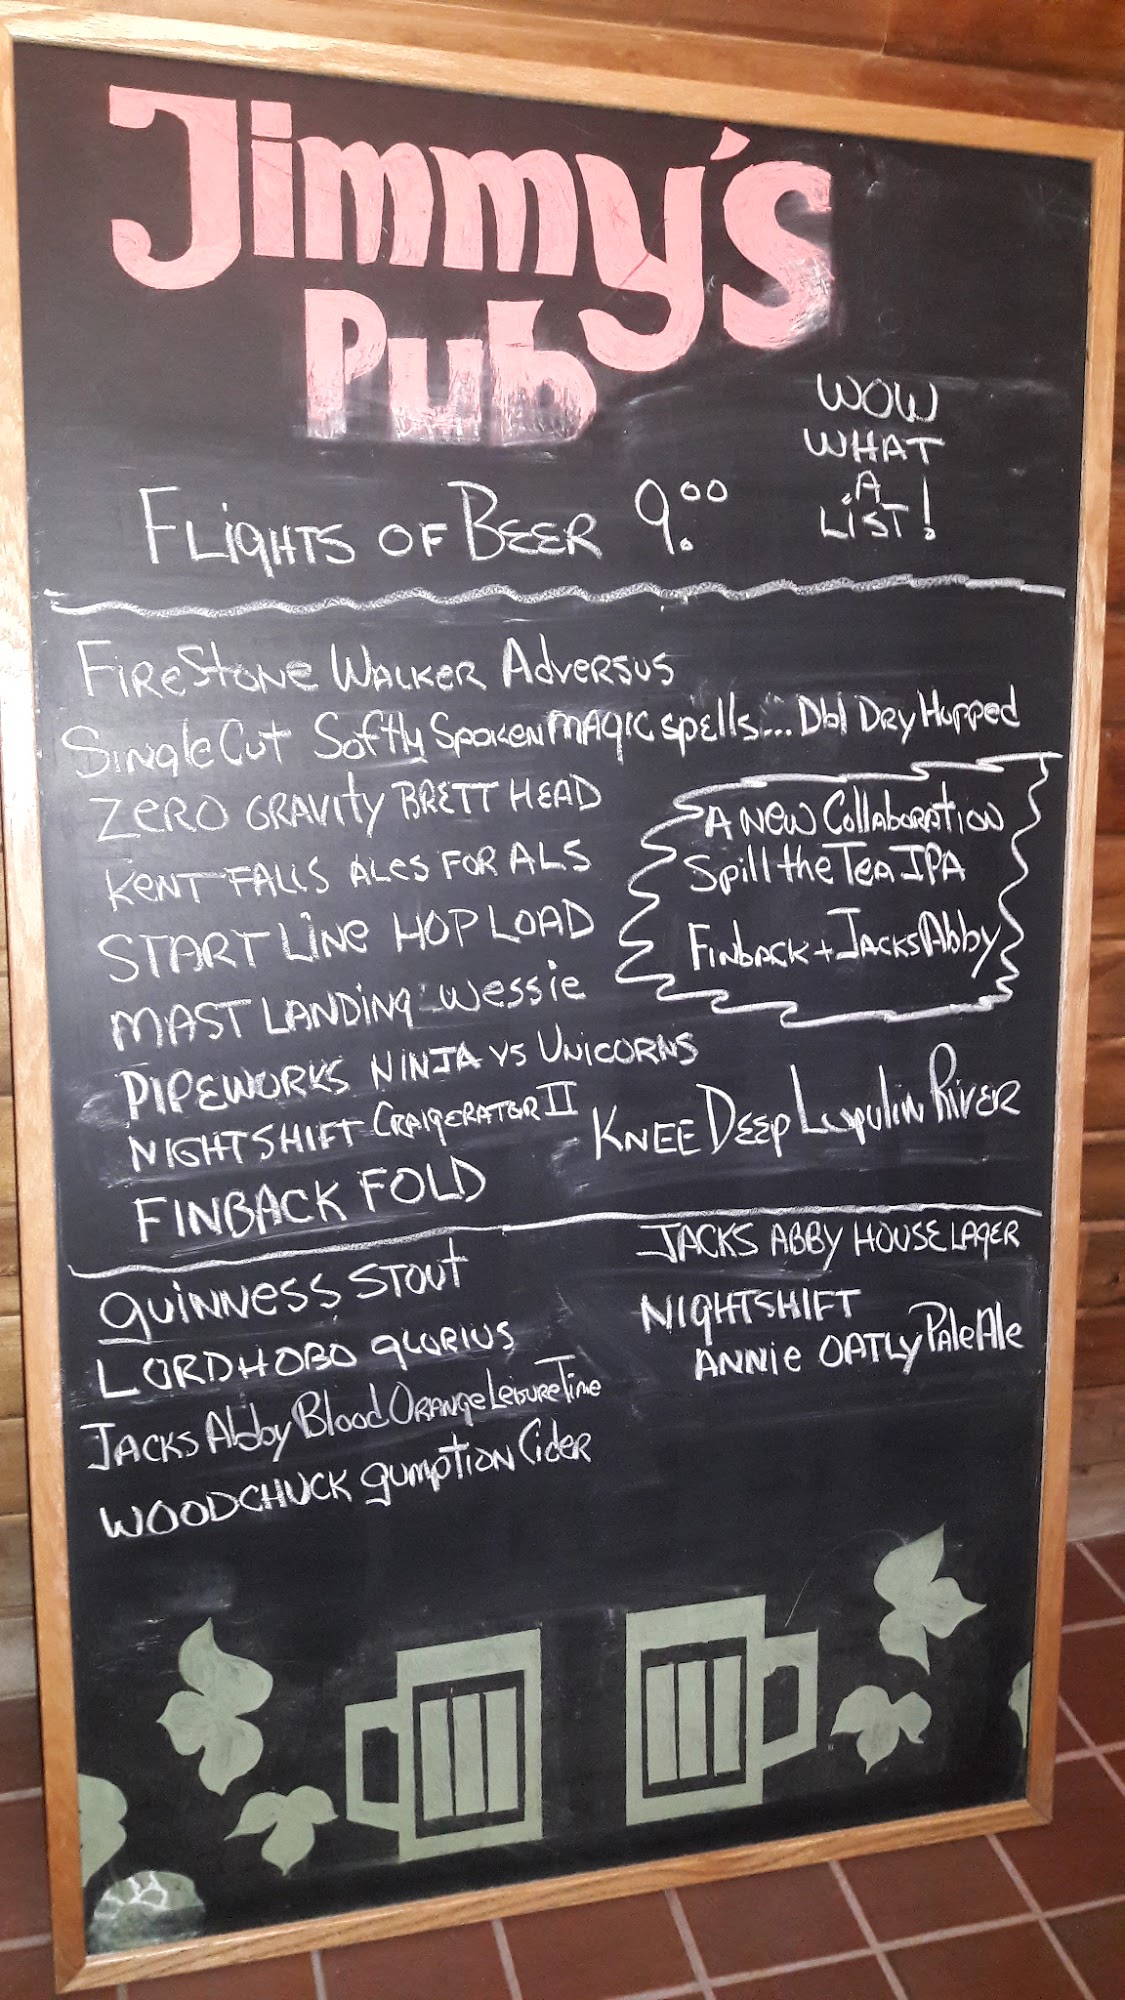 Jimmy's
Pub
WOW
WHAT
A
LIST!
FLIGHTS OF BEER 9.00
FIRESTONE WALKER ADVERSUS
SINGLECUT Softly SPOKEN MAGIC spells... Dbl DRY Hopped
ZERO GRAVITY BRETT HEAD
KENT FALLS ALES FOR ALS
START LINE HOP LOAD
MAST LANDING Wessie
PIPEWORKS NINJA VS UNICORNS
NIGHTSHIFT CRAIGERATOR II
FINBACK FOLD
A NEW Collaboration
Spill the Tea IPA
FINBACK + JACKS Abby
KNEE DEEP Lupulin RIVER
GUINNESS STOUT
LORD HOBO GLORIUS
JACKS Abby Blood ORANGE LEISURE TIME
WOODCHUCK gumption Cider
JACKS ABBY HOUSE LAGER
NIGHTSHIFT
ANNIE OATLY Pale Ale